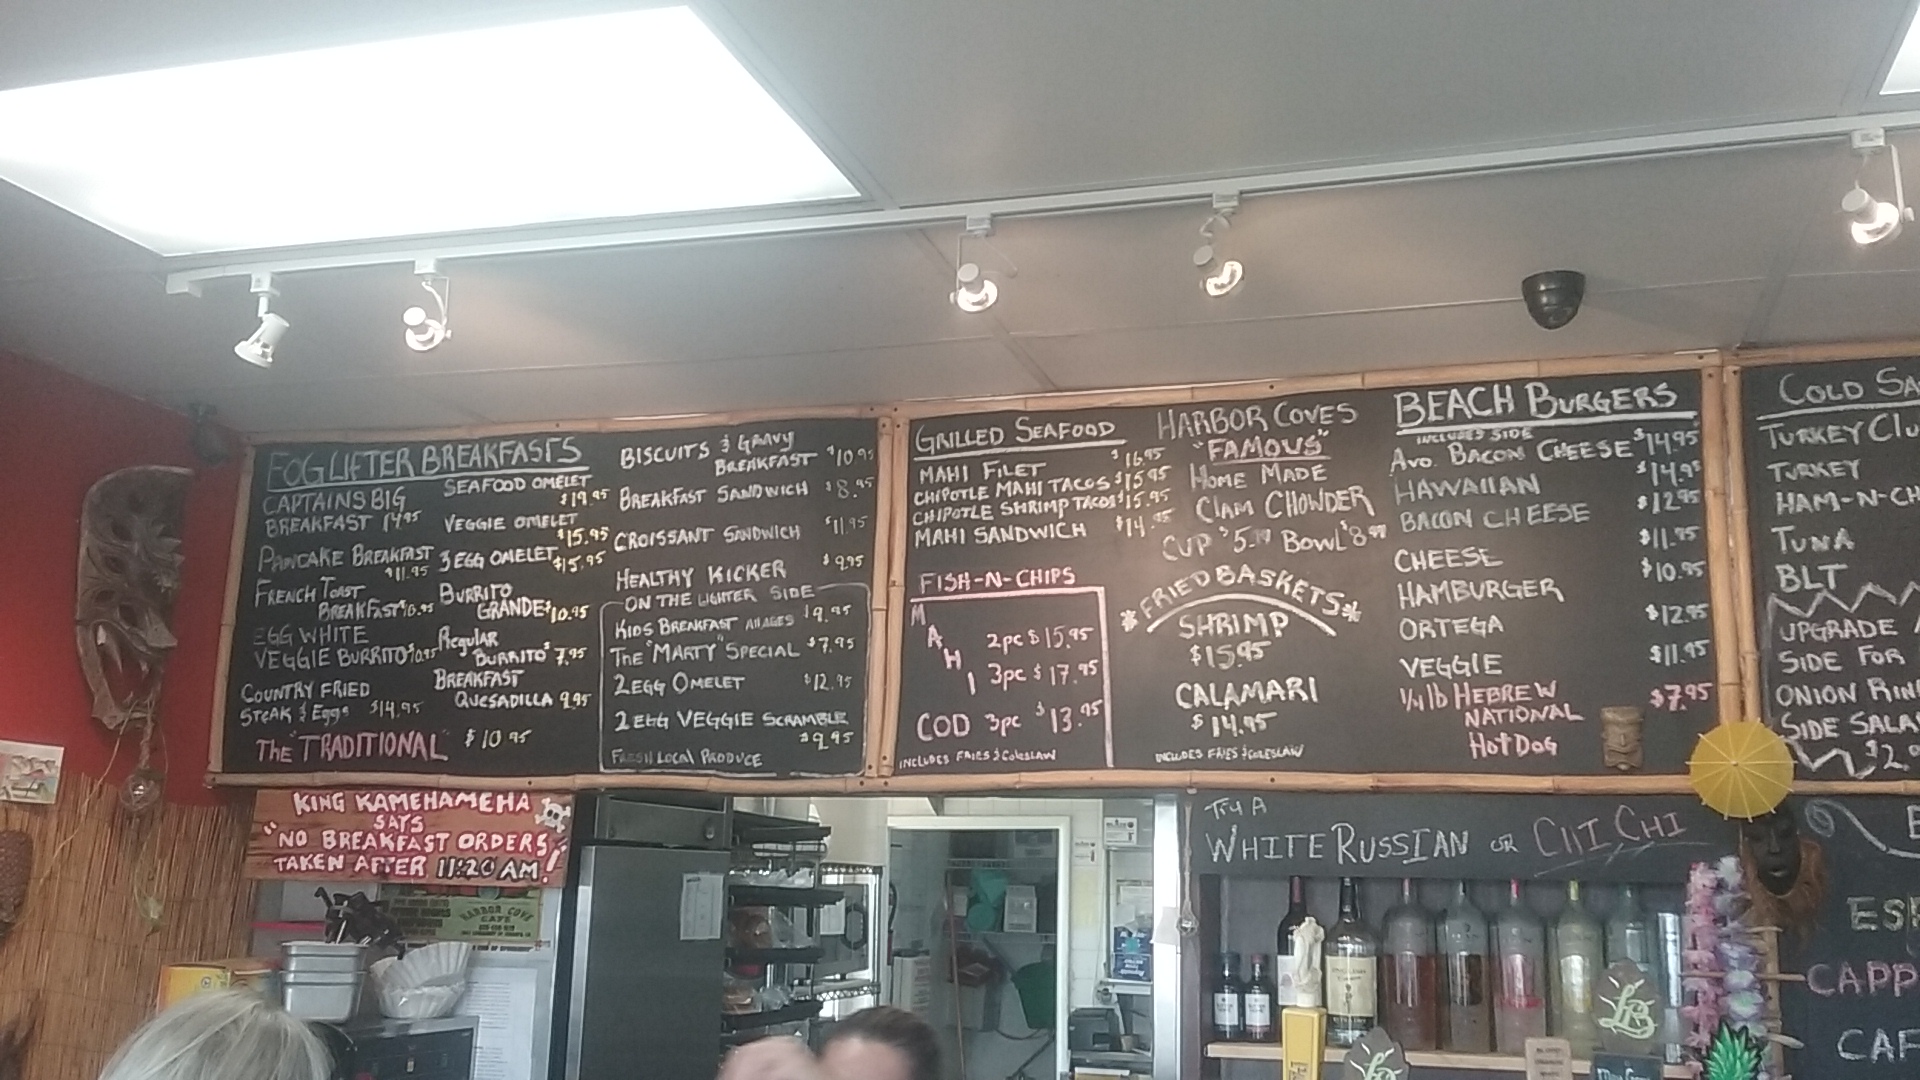 FOGLIFTER BREAKFASTS
CAPTAINS BIG
BREAKFAST 14.95
PANCAKE BREAKFAST
$11.95
FRENCH TOAST
BREAKFAST $10.95
EGG WHITE
VEGGIE BURRITO $10.95
COUNTRY FRIED
STEAK & Eggs $14.95
THE "TRADITIONAL" $10.95
SEAFOOD OMELET
$19.95
VEGGIE OMELET
$15.95
3 EGG OMELET $15.95
BURRITO
GRANDE $10.95
Regular
BURRITO $7.95
BREAKFAST
QUESADILLA 9.95
BISCUITS & GRAVY
BREAKFAST $10.95
BREAKFAST SANDWICH $8.95
CROISSANT SANDWICH $11.95
HEALTHY KICKER $9.95
ON THE LIGHTER SIDE
KIDS BREAKFAST ALL AGES $9.95
THE "MARTY" SPECIAL $7.95
2 EGG OMELET $12.95
2 EGG VEGGIE SCRAMBLE
$9.95
FRESH LOCAL PRODUCE
GRILLED SEAFOOD
MAHI FILET $16.95
CHIPOTLE MAHI TACOS $15.95
CHIPOTLE SHRIMP TACOS $15.95
MAHI SANDWICH $14.95
FISH-N-CHIPS
MAHI
2pc $15.95
3pc $17.95
COD 3pc $13.95
INCLUDES FRIES & COLESLAW
HARBOR COVES
"FAMOUS"
HOME MADE
CLAM CHOWDER
CUP $5.99 BOWL $8.99
*FRIED BASKETS*
SHRIMP
$15.95
CALAMARI
$14.95
INCLUDES FRIES & COLESLAW
BEACH BURGERS
INCLUDES SIDE
AVO. BACON CHEESE $14.95
HAWAIIAN $14.95
BACON CHEESE $12.95
CHEESE $11.95
HAMBURGER $10.95
ORTEGA $12.95
VEGGIE $11.95
1/4 lb HEBREW $7.95
NATIONAL
HOT DOG
COLD SA
TURKEY CLU
TURKEY
HAM-N-CH
TUNA
BLT
UPGRADE
SIDE FOR
ONION RIN
SIDE SALA
$2.9
KING KAMEHAMEHA
SAYS
"NO BREAKFAST ORDERS
TAKEN AFTER 11:20 AM!"
HARBOR COVE
CAFE
Try A
WHITE RUSSIAN OR CHI CHI
ESP
CAPP
CAF